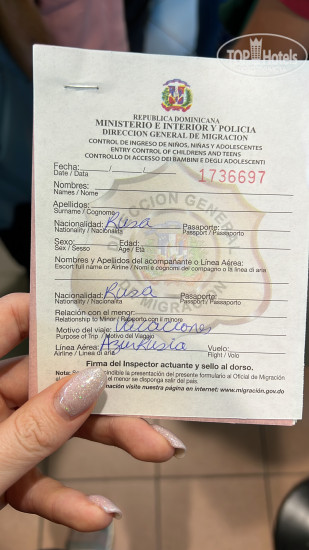 TOP Hotels
REPUBLICA DOMINICANA
MINISTERIO E INTERIOR Y POLICIA
DIRECCION GENERAL DE MIGRACION
CONTROL DE INGRESO DE NIÑOS, NIÑAS Y ADOLESCENTES
ENTRY CONTROL OF CHILDRENS AND TEENS
CONTROLLO DI ACCESO DEI BAMBINI E DEGLI ADOLESCENTI
Fecha: / /
Date / Data
1736697
Nombres:
Names / Nome
Apellidos:
Surname / Cognome
Nacionalidad: Rusa Pasaporte:
Nationality / Nacionalita Passport / Passaporto
Sexo: Edad:
Sex / Sesso Age / Età
Nombres y Apellidos del acompañante o Línea Aérea:
Escort full name or Airline / Nomi e cognomi del compagno o la linea di aria
Nacionalidad: Rusa Pasaporte:
Nationality / Nacionalita Passport / Passaporto
Relación con el menor:
Relationship to Minor / Rapporto con il minore
Motivo del viaje: Vacaciones
Purpose of Trip / Motivo del Viaggio
Línea Aérea: AzurRusia Vuelo:
Airline / Linea di aria Flight / Volo
Firma del Inspector actuante y sello al dorso.
Nota: cindible la presentación del presente formulario al Oficial de Migración
el menor se disponga salir del país.
mación visite nuestra página en internet: www.migración.gov.do
DIRECCION GENERAL
MIGRACION